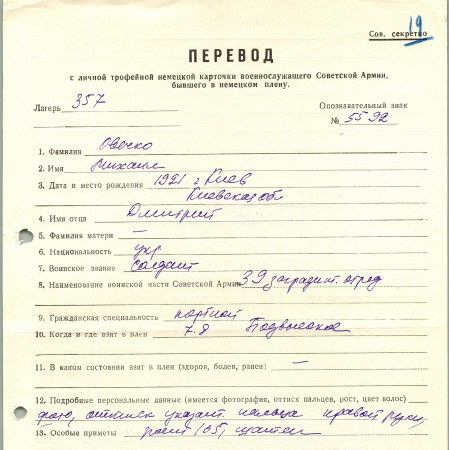 Сов. секретно
19
ПЕРЕВОД
с личной трофейной немецкой карточки военнослужащего Советской Армии,
бывшего в немецком плену.
Лагерь 357
Опознавательный знак
№ 5592
1. Фамилия Овечко
2. Имя Михаил
3. Дата и место рождения 1921 г Киев
Киевская обл
4. Имя отца Дмитрий
5. Фамилия матери —
6. Национальность укр.
7. Воинское звание солдат
8. Наименование воинской части Советской Армии 39 заградит. отряд
9. Гражданская специальность портной
10. Когда и где взят в плен 7.8 Подвысокое
11. В каком состоянии взят в плен (здоров, болен, ранен) —
12. Подробные персональные данные (имеется фотография, оттиск пальцев, рост, цвет волос)
фото, оттиск указат пальца правой руки,
13. Особые приметы рост 165, шатен